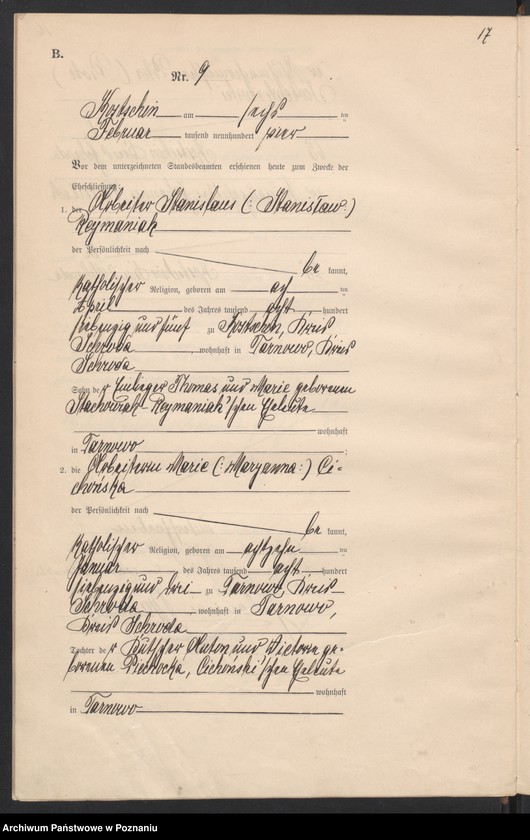 17
B.
Nr. 9
Kostschin am sechs ten
Februar tausend neunhundert vier
Vor dem unterzeichneten Standesbeamten erschienen heute zum Zwecke der
Eheschließung:
1. der Arbeiter Stanislaus (: Stanisław :)
Reymaniak
der Persönlichkeit nach
be kannt,
katholischer Religion, geboren am acht ten
April des Jahres tausend acht hundert
siebenzig und fünf zu Kostschin, Kreis
Schroda, wohnhaft in Tarnowo, Kreis
Schroda
Sohn der Thomas und Marie geborenen
Stachowiak Reymaniak'schen Eheleute
wohnhaft
in Tarnowo ;
2. die Arbeiterin Marie (: Maryanna :) Ci-
chońska
der Persönlichkeit nach
be kannt,
katholischer Religion, geboren am achtzehn ten
Januar, des Jahres tausend acht hundert
siebenzig und drei zu Tarnowo, Kreis
Schroda, wohnhaft in Tarnowo,
Kreis Schroda
Tochter der Kutscher Anton und Victoria ge-
borenen Cichoński'schen Eheleute
wohnhaft
in Tarnowo
Archiwum Państwowe w Poznaniu